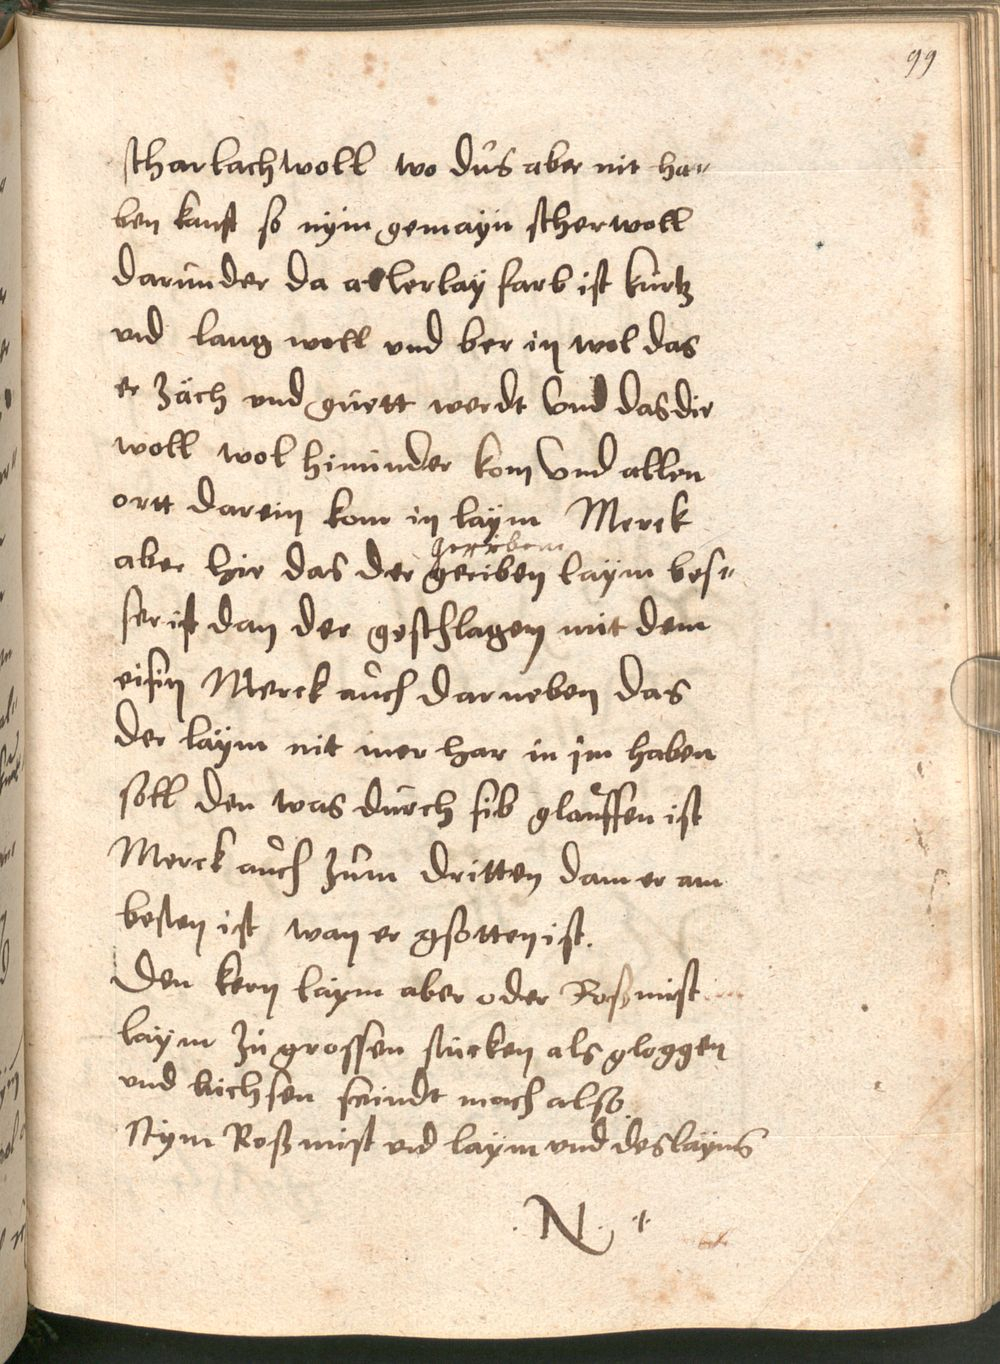 99
scharlach woll wo dus aber nit ha-
ben kanst so nÿm gemayn scherwoll
darunder da allerlaÿ farb ist kurtz
und lang woll vnd ber in wol das
er zäch vnd guett werdt Vnd das die
woll wol hinunder kom Vnd allen
ortt darein kom in laÿm Merck
geriben
aber hie das der geriben laÿm bes-
ser ist dan der geschlagen mit dem
eisin Merck auch darneben das
der laÿm nit mer har in im haben
soll den was durch sib glauffen ist
Merck auch zum dritten dam er am
besten ist wan er gsotten ist.
Den kern laÿm aber oder Roßmist
laÿm zu grossen stucken als gloggen
vnd buchsen seindt mach also
Nÿm Roßmist vnd laÿm vnd des layms
.N. 1